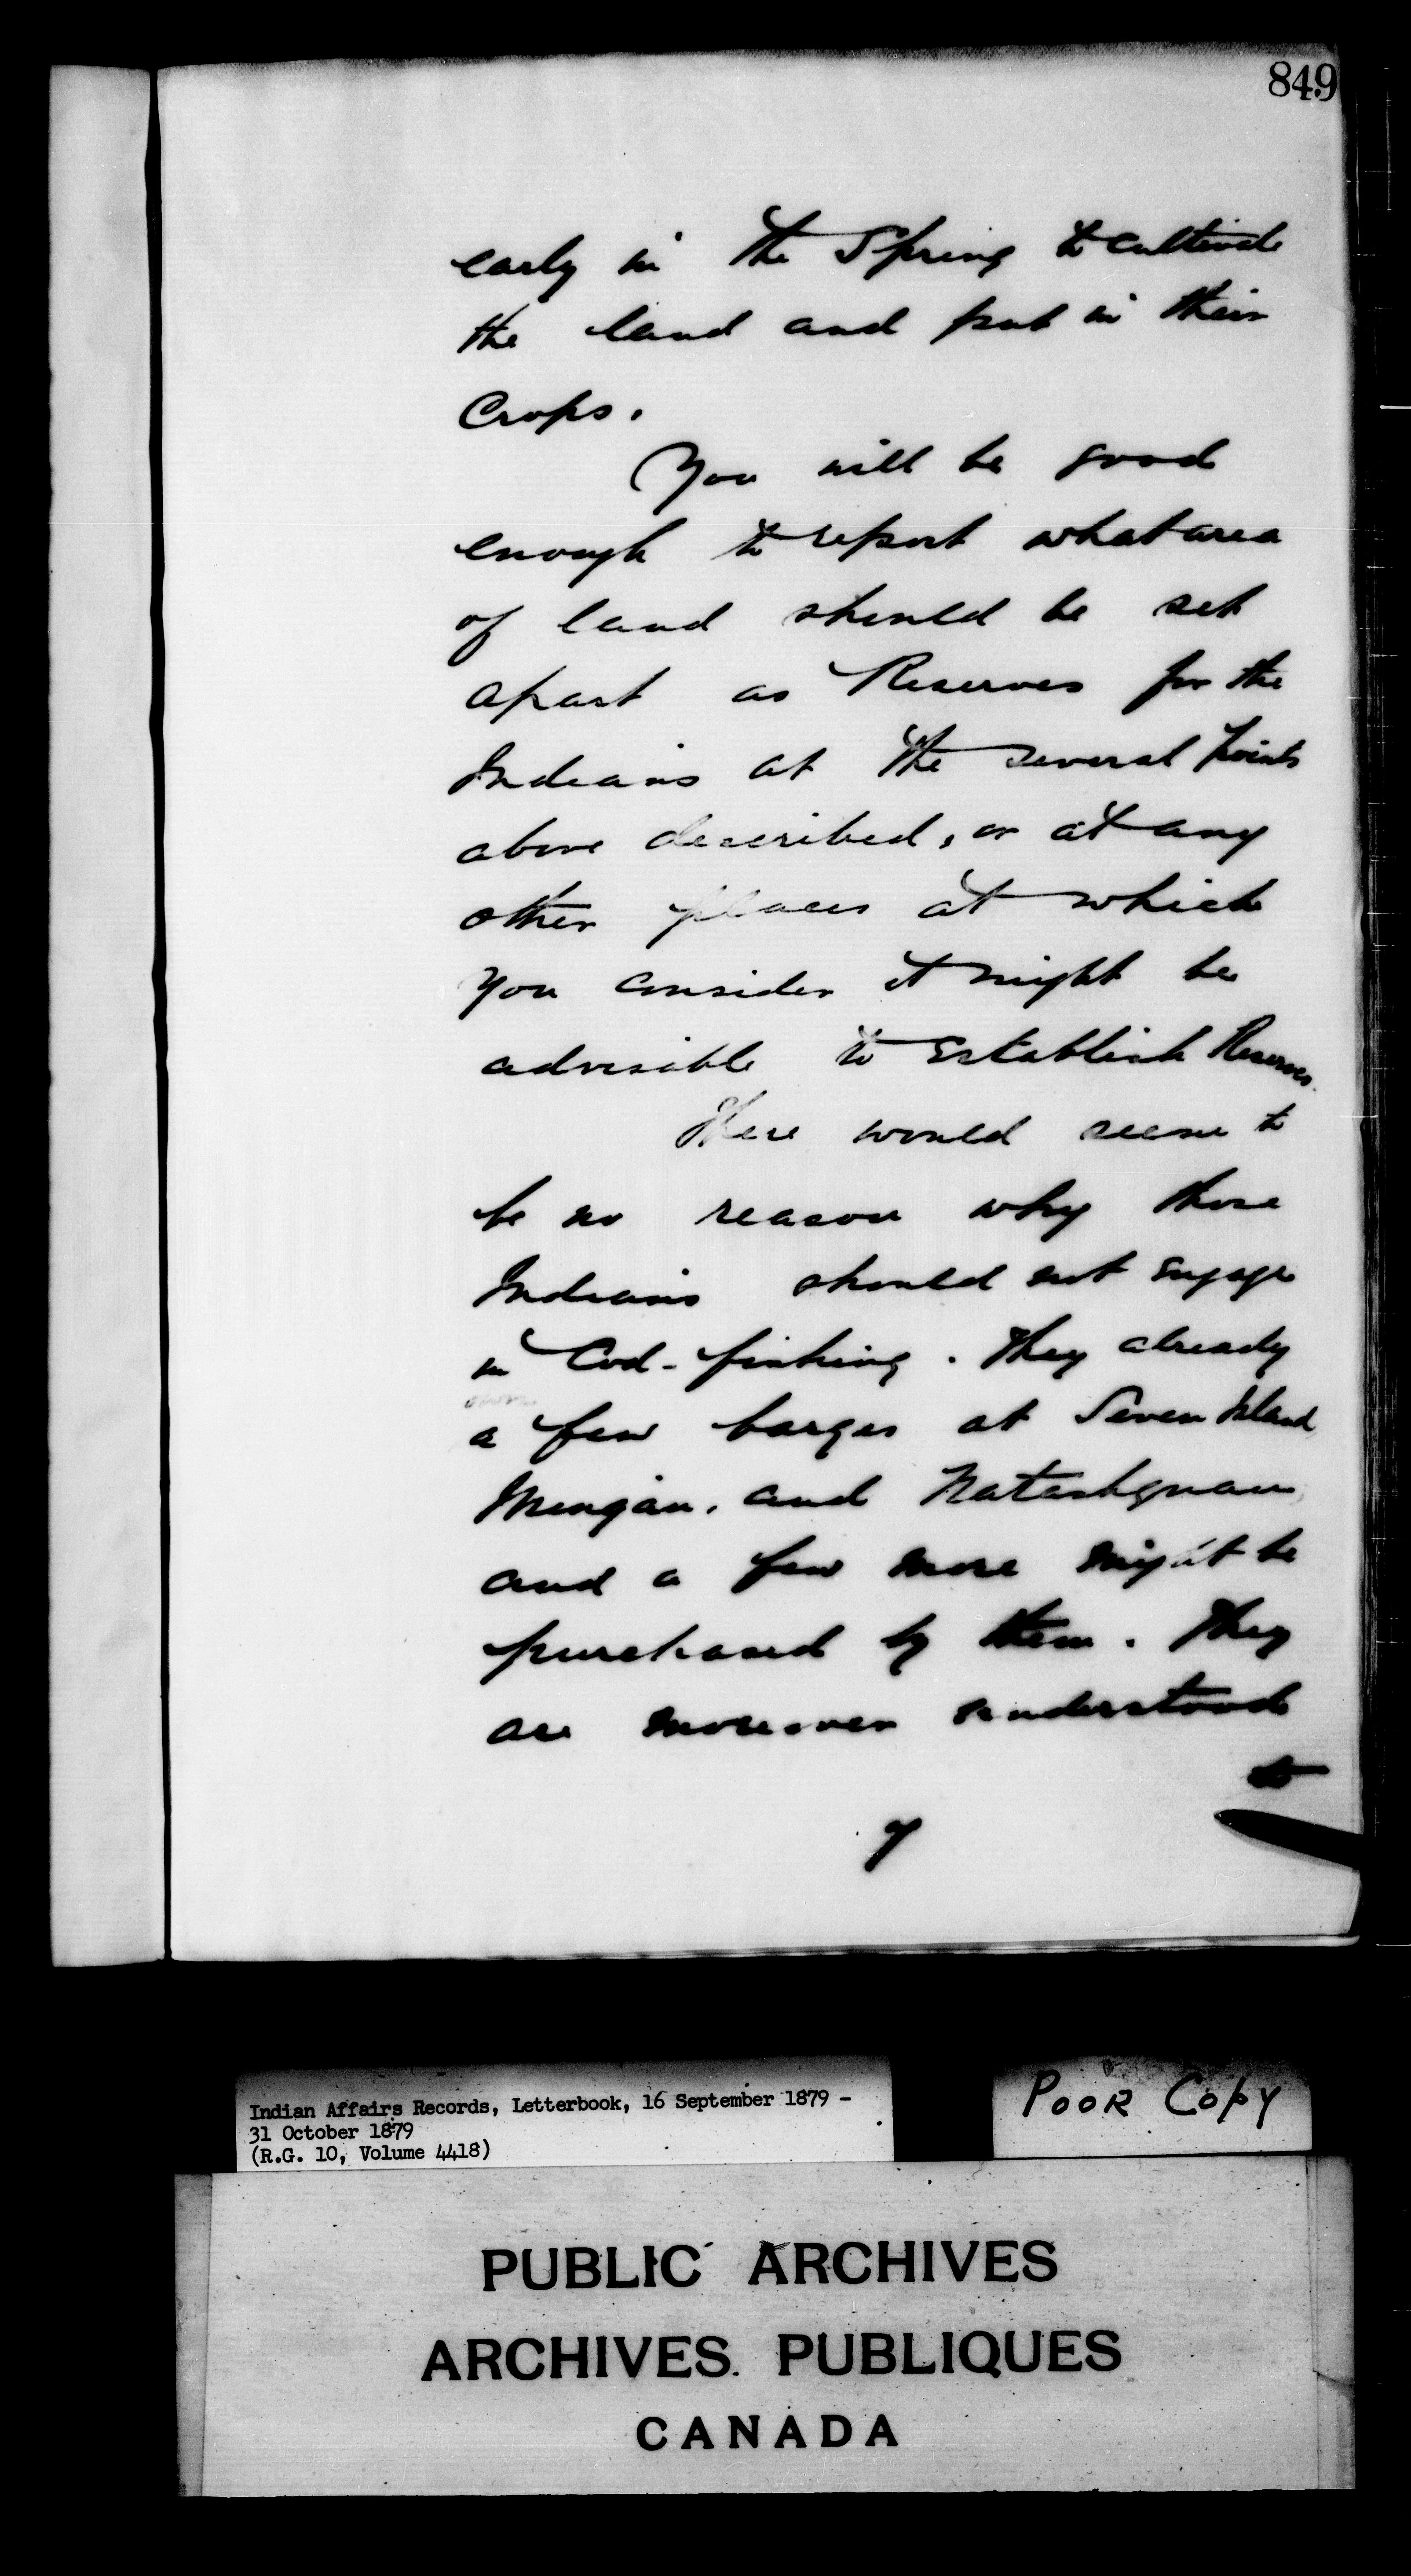 849
early in the Spring to cultivate
the land and put in their
Crops.
You will be good
enough to report what area
of land should be set
apart as Reserves for the
Indians at the several points
above described, or at any
other places at which
you consider it might be
advisable to establish Reserves.
There would seem to
be no reason why those
Indians should not engage
in Cod-fishing. They already
own
a few barges at Seven Island,
Mingan, and Natashquan,
and a few more might be
purchased by them. They
are moreover understood
to
7
Indian Affairs Records, Letterbook, 16 September 1879 -
31 October 1879
(R.G. 10, Volume 4418)
POOR COPY
PUBLIC ARCHIVES
ARCHIVES PUBLIQUES
CANADA